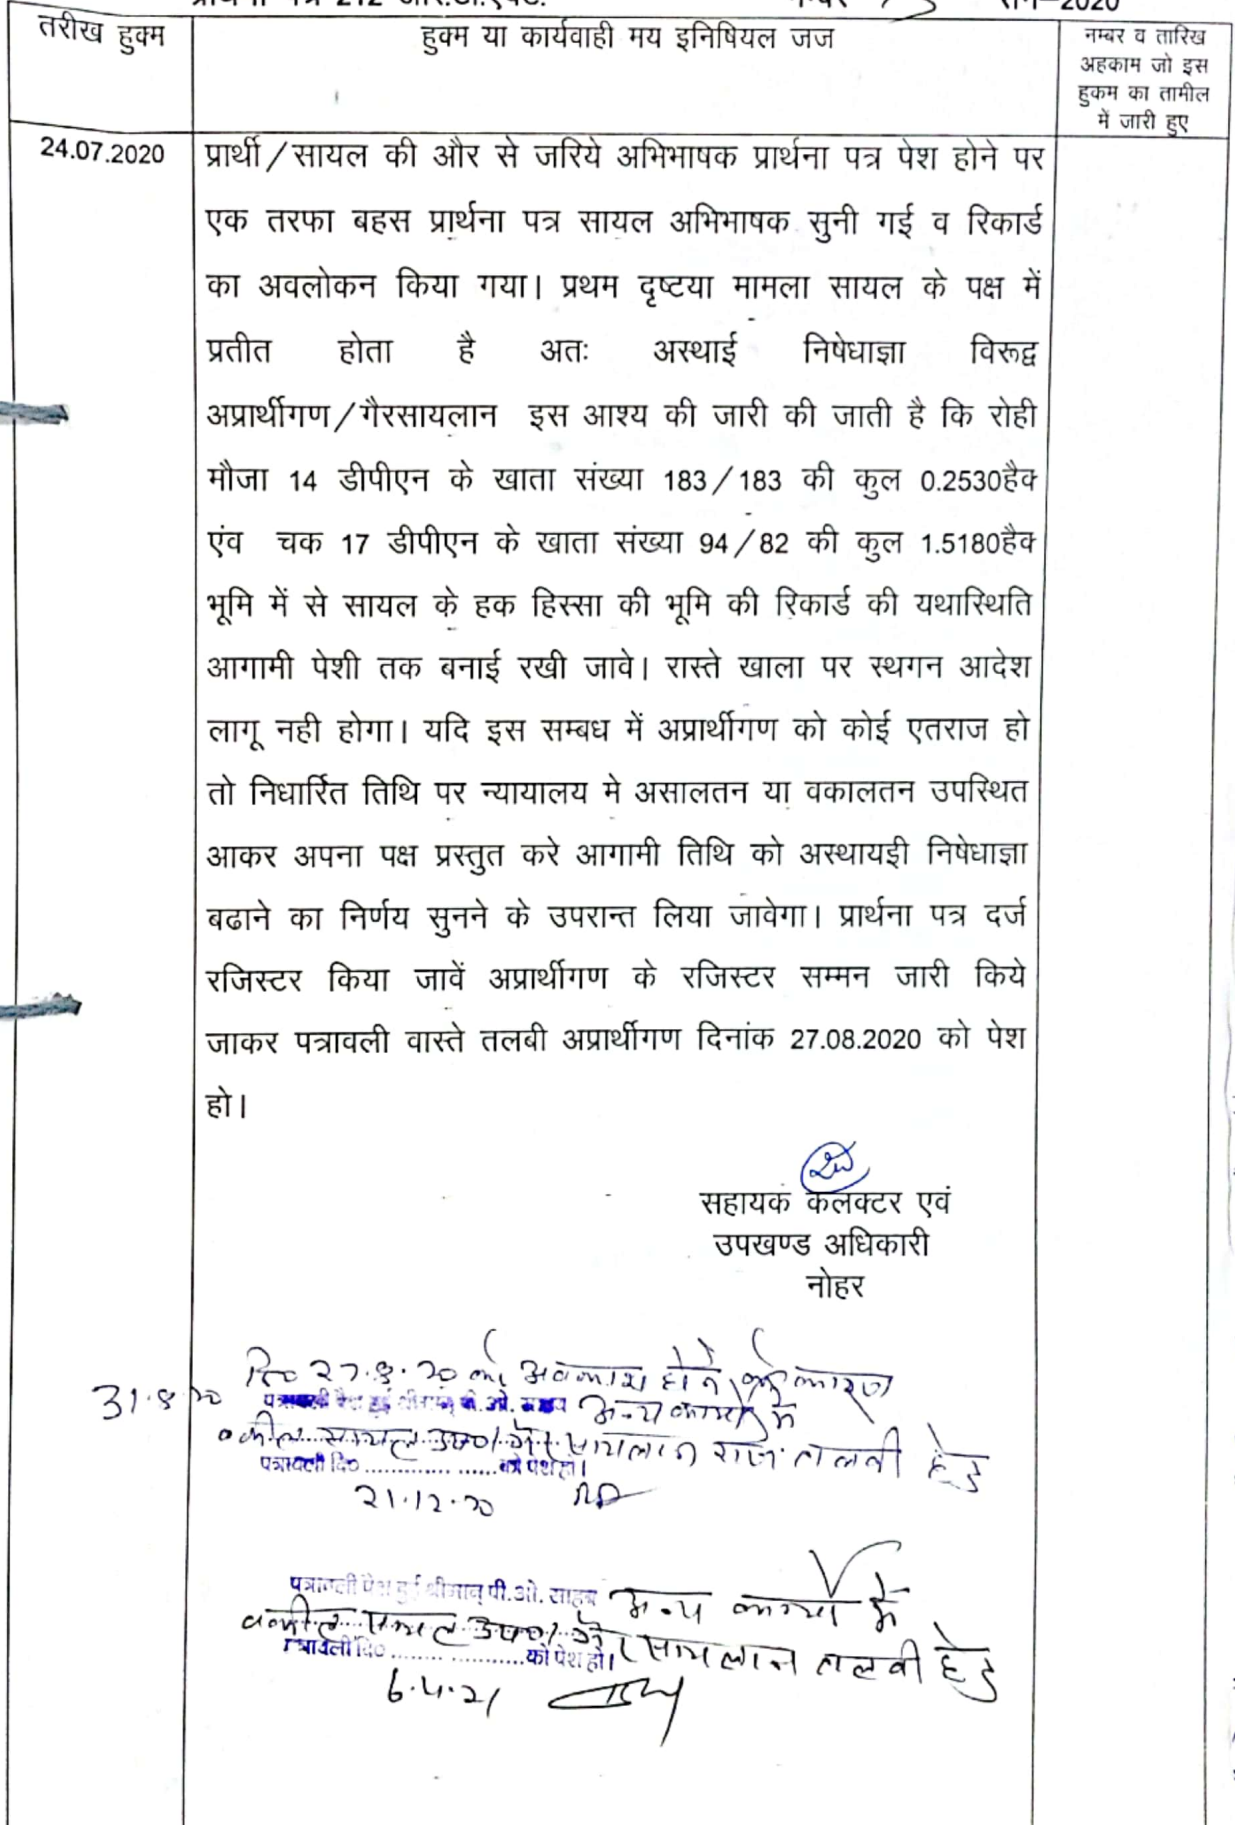 प्रार्थना पत्र 212 आर.टी.एक्ट. नम्बर सन–2020
तरीख हुक्म
हुक्म या कार्यवाही मय इनिषियल जज
नम्बर व तारिख
अहकाम जो इस
हुकम का तामील
में जारी हुए
24.07.2020
प्रार्थी/सायल की और से जरिये अभिभाषक प्रार्थना पत्र पेश होने पर
एक तरफा बहस प्रार्थना पत्र सायल अभिभाषक सुनी गई व रिकार्ड
का अवलोकन किया गया। प्रथम दृष्टया मामला सायल के पक्ष में
प्रतीत होता है अतः अस्थाई निषेधाज्ञा विरूद्व
अप्रार्थीगण/गैरसायलान इस आश्य की जारी की जाती है कि रोही
मौजा 14 डीपीएन के खाता संख्या 183/183 की कुल 0.2530हैक
एंव चक 17 डीपीएन के खाता संख्या 94/82 की कुल 1.5180हैक
भूमि में से सायल के हक हिस्सा की भूमि की रिकार्ड की यथास्थिति
आगामी पेशी तक बनाई रखी जावे। रास्ते खाला पर स्थगन आदेश
लागू नही होगा। यदि इस सम्बध में अप्रार्थीगण को कोई एतराज हो
तो निधार्रित तिथि पर न्यायालय मे असालतन या वकालतन उपस्थित
आकर अपना पक्ष प्रस्तुत करे आगामी तिथि को अस्थायइी निषेधाज्ञा
बढाने का निर्णय सुनने के उपरान्त लिया जावेगा। प्रार्थना पत्र दर्ज
रजिस्टर किया जावें अप्रार्थीगण के रजिस्टर सम्मन जारी किये
जाकर पत्रावली वास्ते तलबी अप्रार्थीगण दिनांक 27.08.2020 को पेश
हो।
सहायक कलक्टर एवं
उपखण्ड अधिकारी
नोहर
31.8.20
दि० 27.8.20 को अवकाश होने के कारण
पत्रावली पेश हुई श्रीमान् पी.ओ. साहब अन्य कार्यो में
वकील सायल उप० गैर सायलान राज. तलबी हेतु
पत्रावली दि० .................... को पेश हो।
21.12.20
पत्रावली पेश हुई श्रीमान् पी.ओ. साहब अन्य कार्यो में
वकील सायल उप० गैर सायलान तलबी हेतु
पत्रावली दि० .................... को पेश हो।
6.4.21